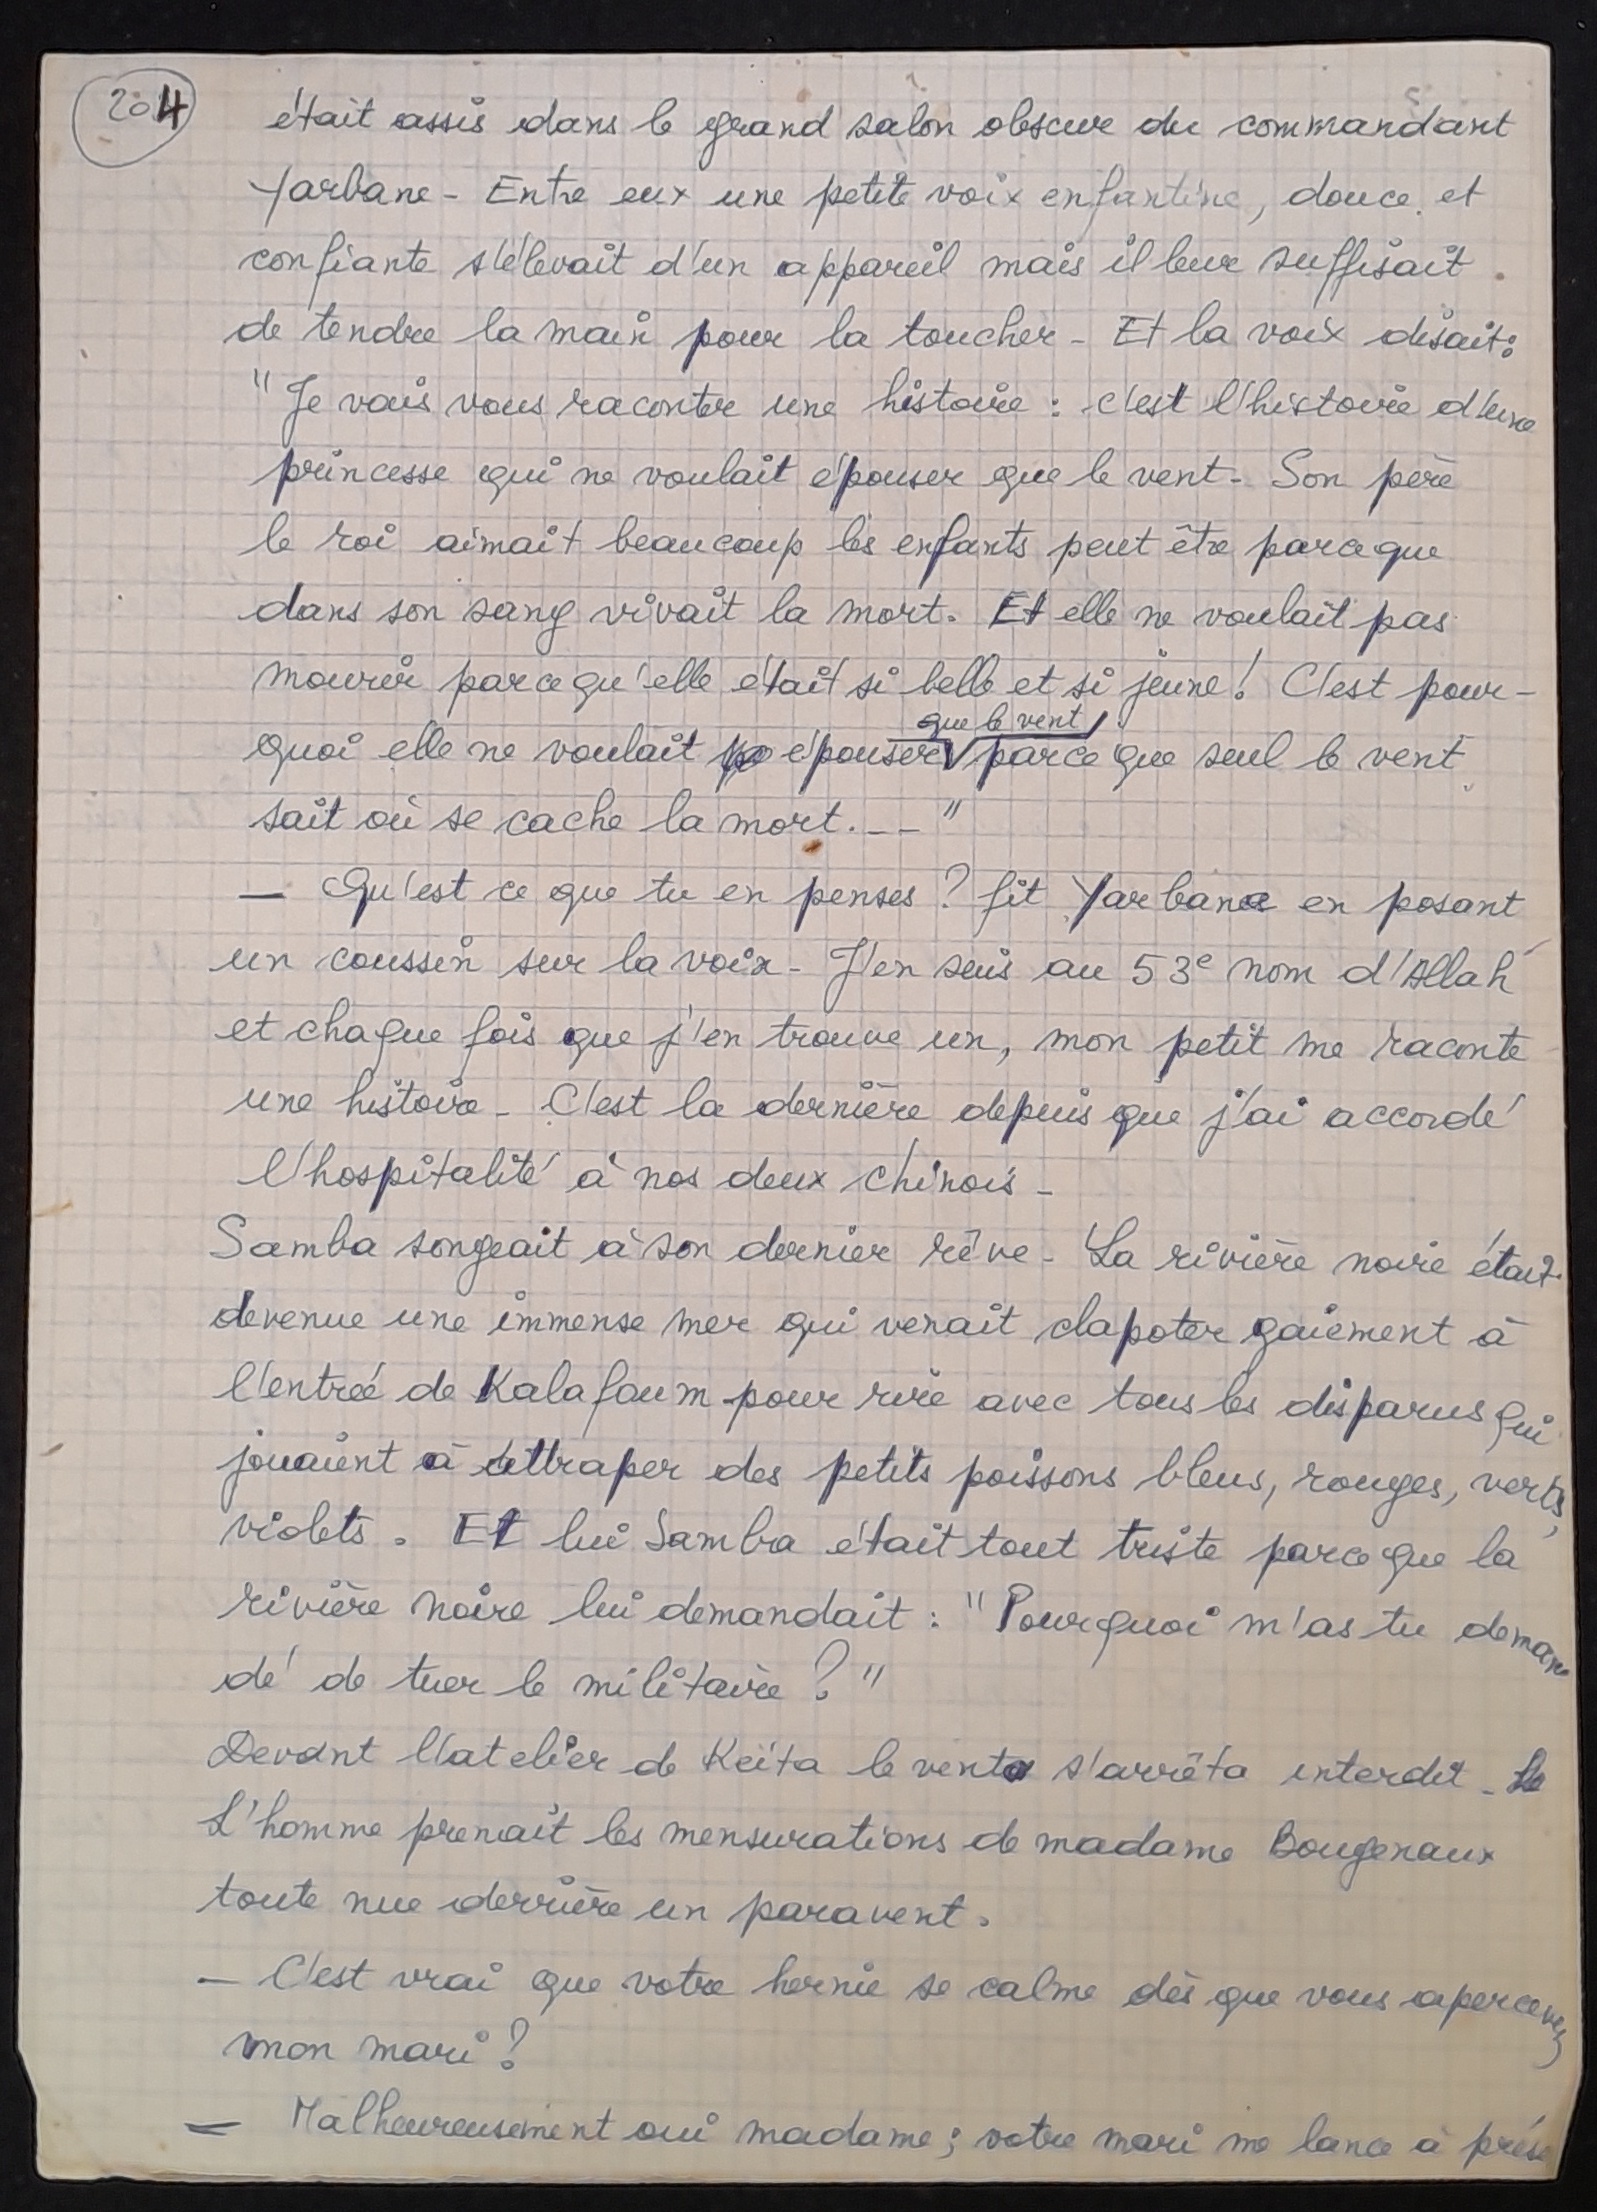 204
était assis dans le grand salon obscur du commandant
Yarbane - Entre eux une petite voix enfantine, douce et
confiante s'élevait d'un appareil mais il leur suffisait
de tendre la main pour la toucher - Et la voix disait :
"Je vais vous raconter une histoire : c'est l'histoire d'une
princesse qui ne voulait épouser que le vent - Son père
le roi aimait beaucoup les enfants peut être parce que
dans son sang vivait la mort. Et elle ne voulait pas
mourir parce qu'elle était si belle et si jeune ! C'est pour-
que le vent
quoi elle ne voulait épouser parce que seul le vent
sait où se cache la mort. -- "
— Qu'est ce que tu en penses ? fit Yarbane en posant
un coussin sur la voix - J'en suis au 53e nom d'Allah
et chaque fois que j'en trouve un, mon petit me raconte
une histoire - C'est la dernière depuis que j'ai accordé
l'hospitalité à nos deux chinois -
Samba songeait à son dernier rêve - La rivière noire était
devenue une immense mer qui venait clapoter gaiement à
l'entrée de Kalafoum pour rire avec tous les disparus qui
jouaient à attraper des petits poissons bleus, rouges, verts,
violets. Et lui Samba était tout triste parce que la
rivière noire lui demandait : "Pourquoi m'as tu deman
dé de tuer le militaire ?"
Devant l'atelier de Keïta le vent s'arrêta interdit - Le
L'homme prenait les mensurations de madame Bougenaux
toute nue derrière un paravent.
— C'est vrai que votre hernie se calme dès que vous apercevez
mon mari ?
— Malheureusement oui madame ; votre mari me lance à prése